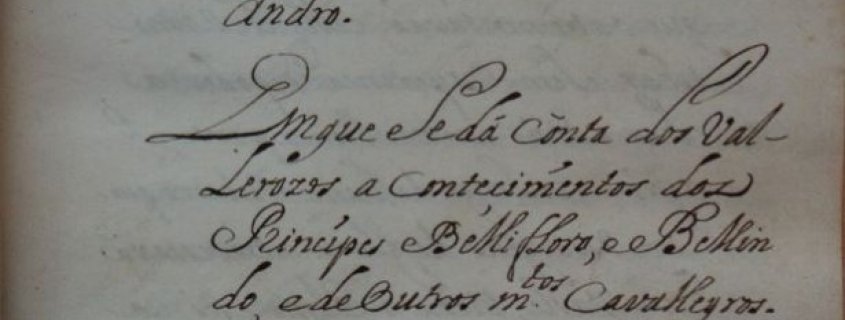 andro.
Em que se dá cõnta dos Val-
lerozos a contecimentos dos
Principes Bellifloro, e Bellin
do, e de outros m.tos Cavalleyros.